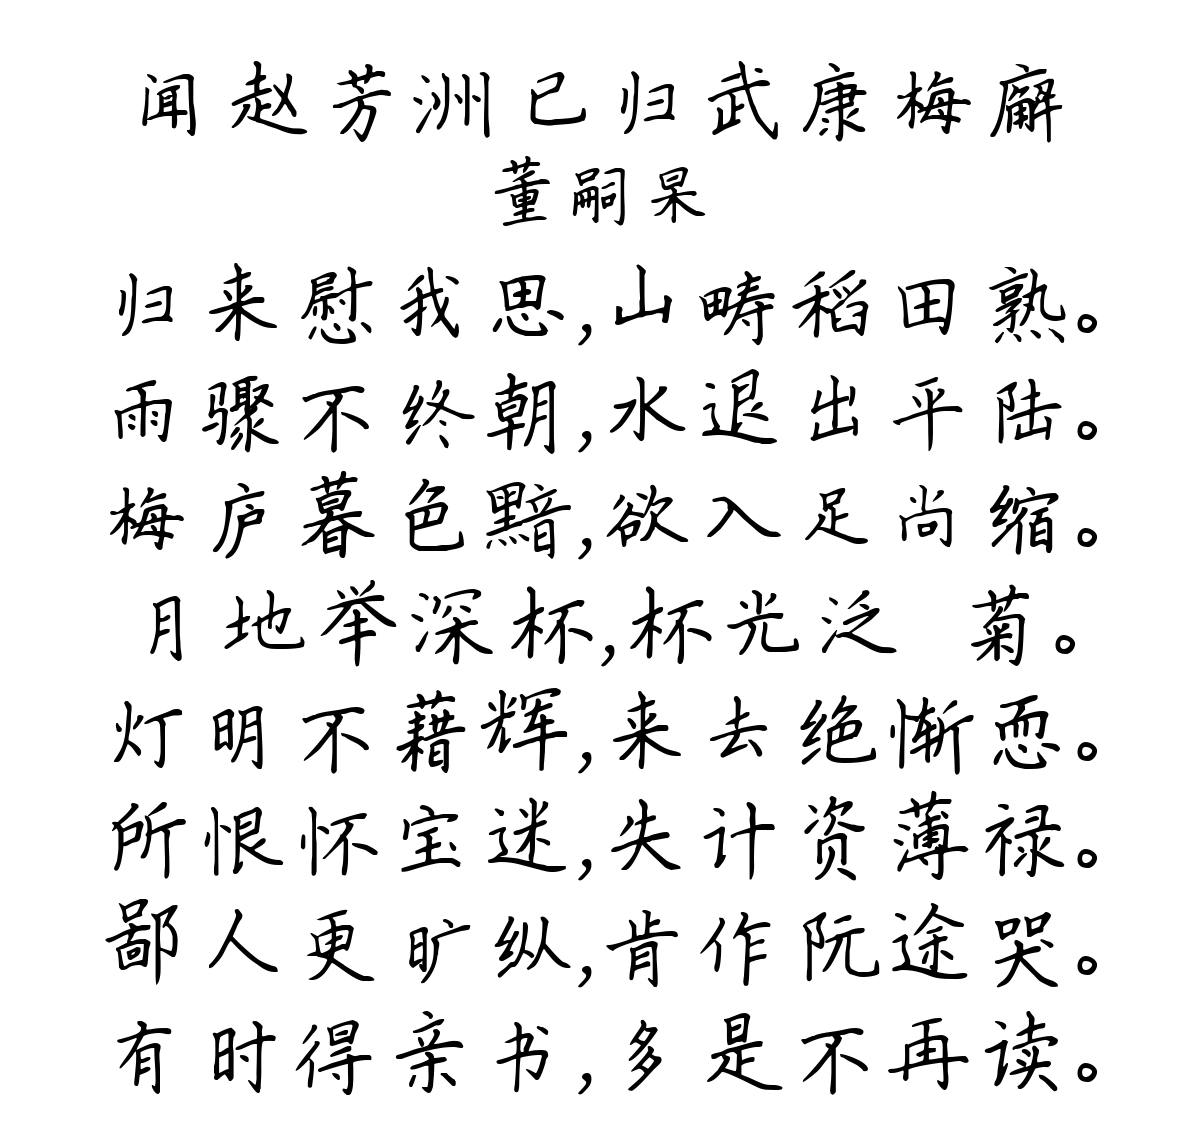 闻赵芳洲已归武康梅廨
董嗣杲
归来慰我思,山畴稻田熟。
雨骤不终朝,水退出平陆。
梅庐暮色黯,欲入足尚缩。
月地举深杯,杯光泛 菊。
灯明不藉辉,来去绝惭恧。
所恨怀宝迷,失计资薄禄。
鄙人更旷纵,肯作阮途哭。
有时得亲书,多是不再读。